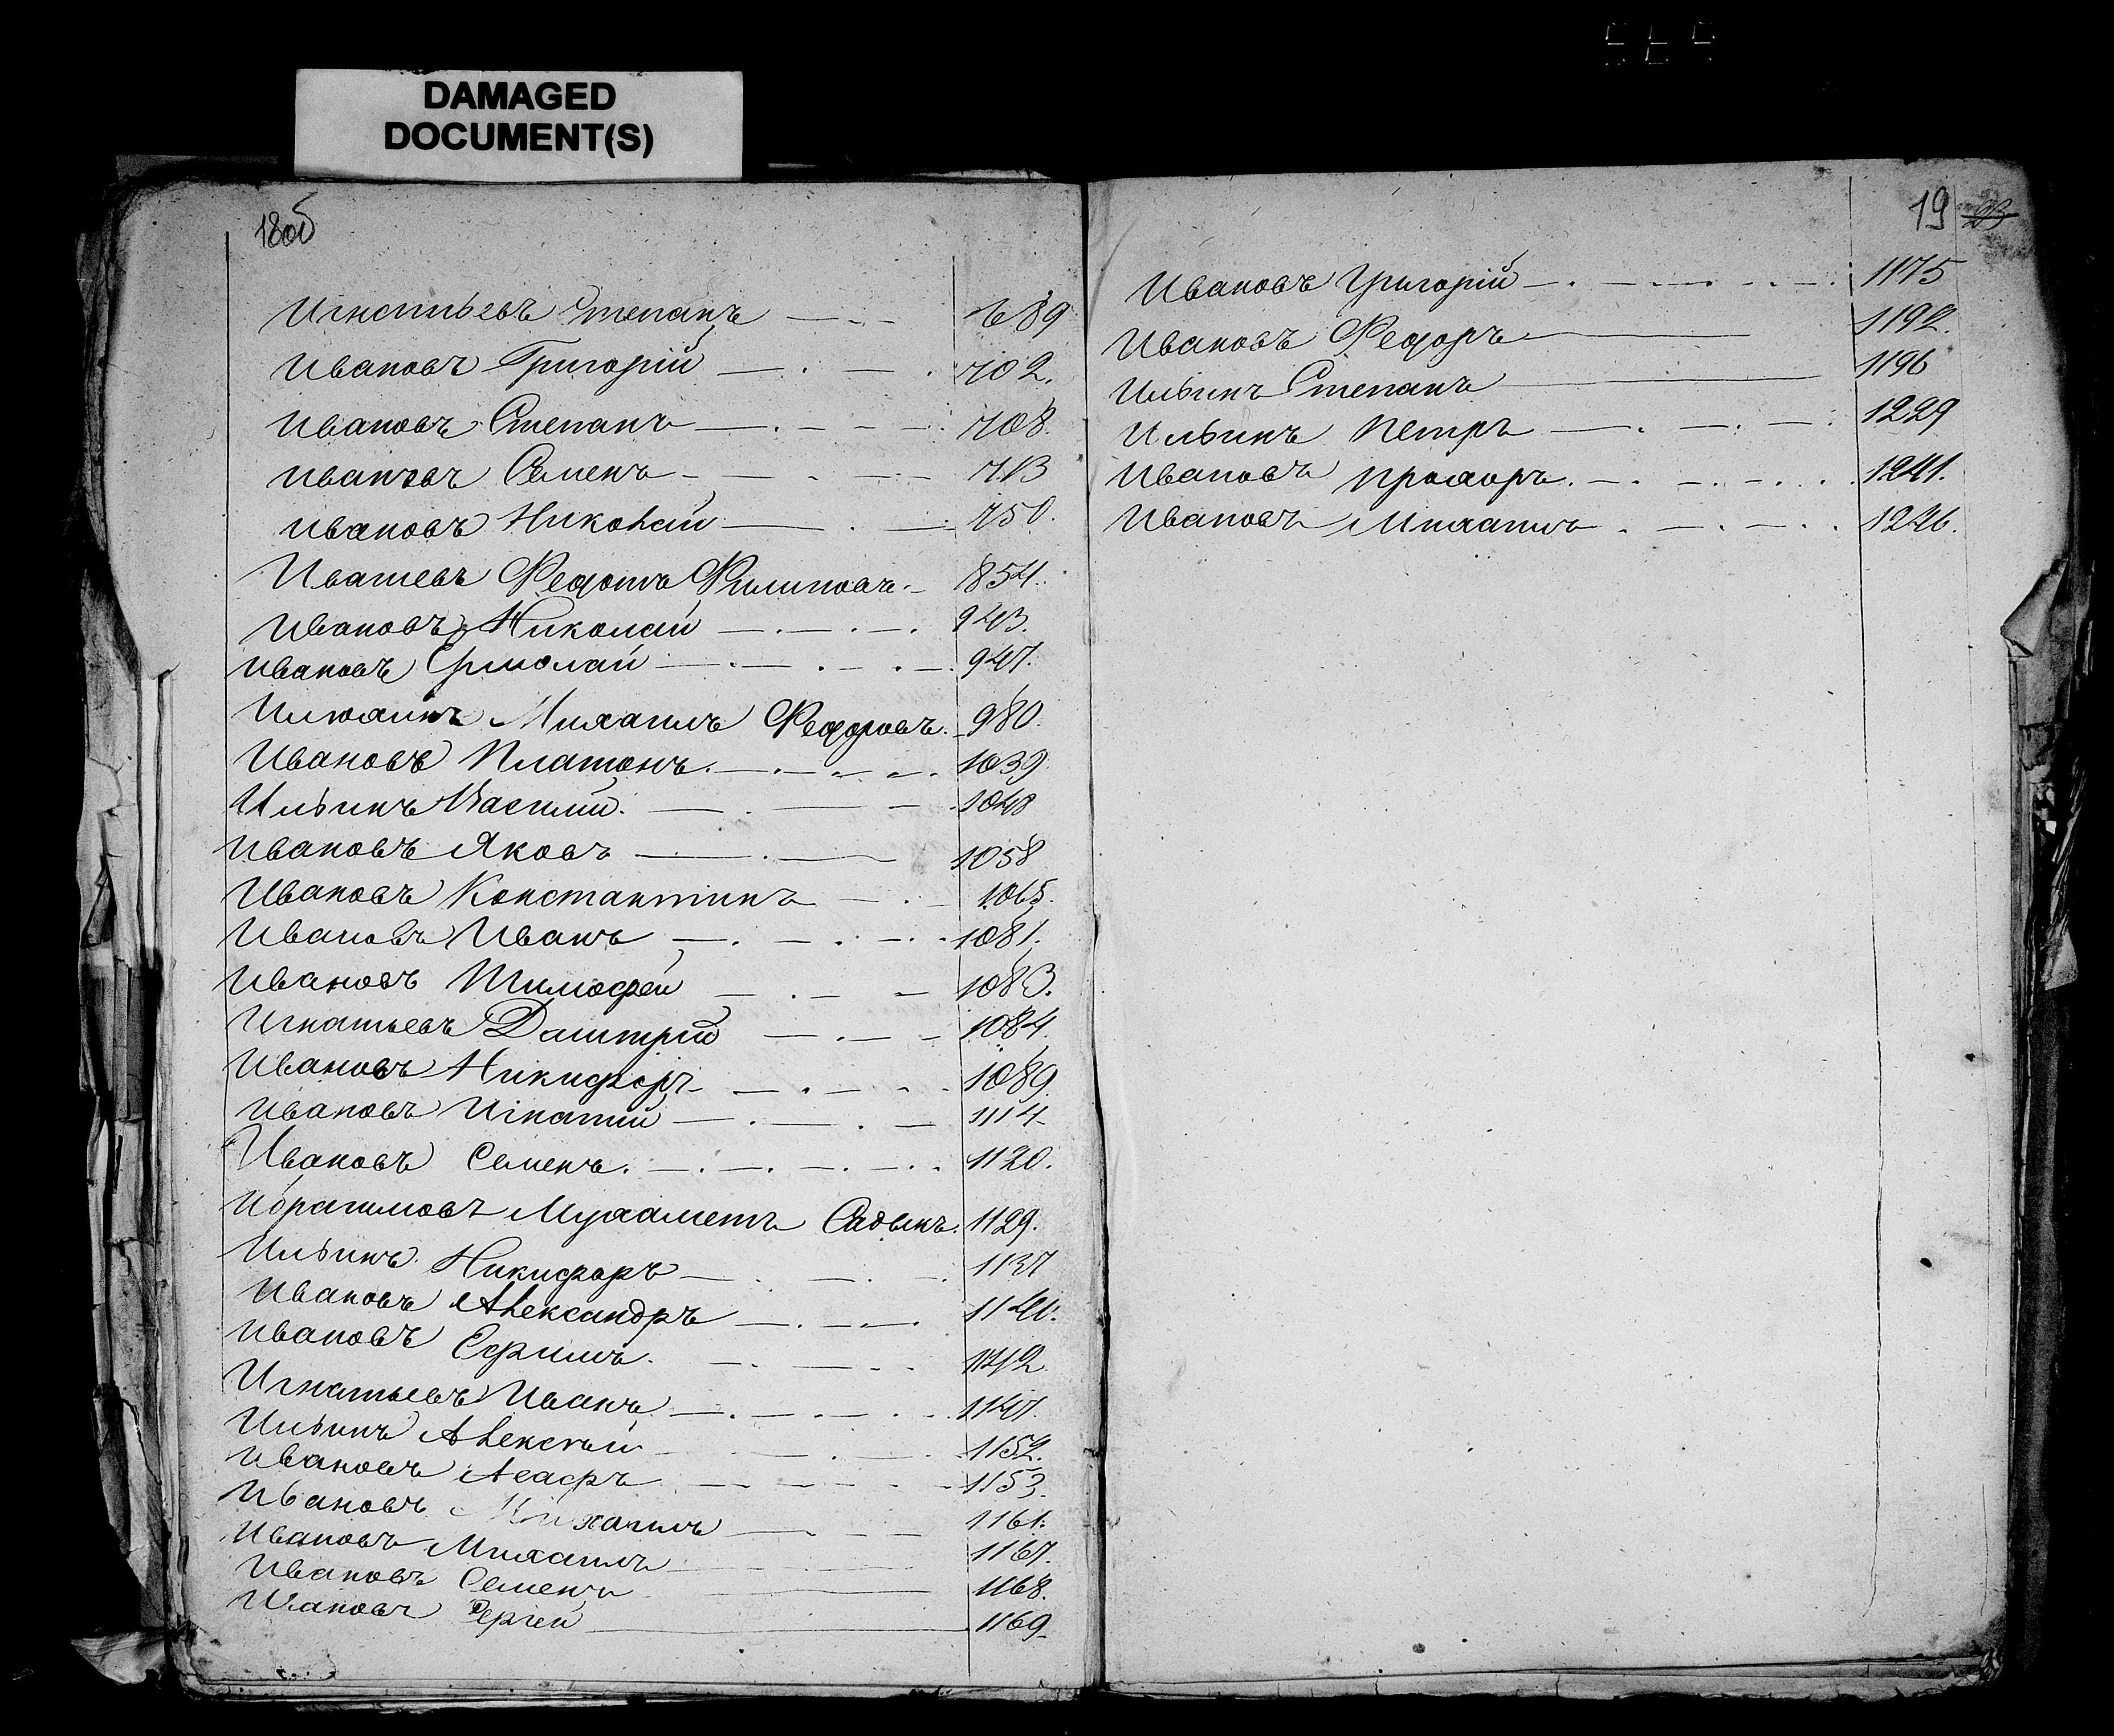 DAMAGED
DOCUMENT(S)
18об
Игнатьевъ Степанъ 689
Ивановъ Григорій 702.
Ивановъ Степанъ 708.
Ивановъ Семенъ 713
Ивановъ Николай 750.
Ивашевъ Федотъ Филиповъ. 854.
Ивановъ Николай 943.
Ивановъ Ермолай 947.
Илюхинъ Михаилъ Федоровъ. 980.
Ивановъ Платонъ. 1039
Ильинъ Василий. 1048
Ивановъ Яковъ 1058
Ивановъ Константинъ 1065.
Ивановъ Иванъ 1081.
Ивановъ Тимофей 1083.
Игнатьевъ Дмитрій 1084.
Ивановъ Никифоръ 1089
Ивановъ Игнатій 1114
Ивановъ Семенъ. 1120.
Ибрагимовъ Мухаметъ Садыкъ. 1129.
Ильинъ Никифоръ 1137
Ивановъ Александръ
Ивановъ Ефимъ. 1142
Игнатьевъ Иванъ 1147.
Ильинъ Алексѣй 1152.
Ивановъ Асафъ 1153.
Ивановъ Михаилъ 1161.
Ивановъ Михаилъ 1167.
Ивановъ Семенъ 1168.
Ивановъ Сергей 1169
19 23
Ивановъ Григорій 1175
Ивановъ Федоръ 1192.
Ильинъ Степанъ 1196
Ильинъ Петръ 1229
Ивановъ Прохоръ. 1241.
Ивановъ Михаилъ 1246.